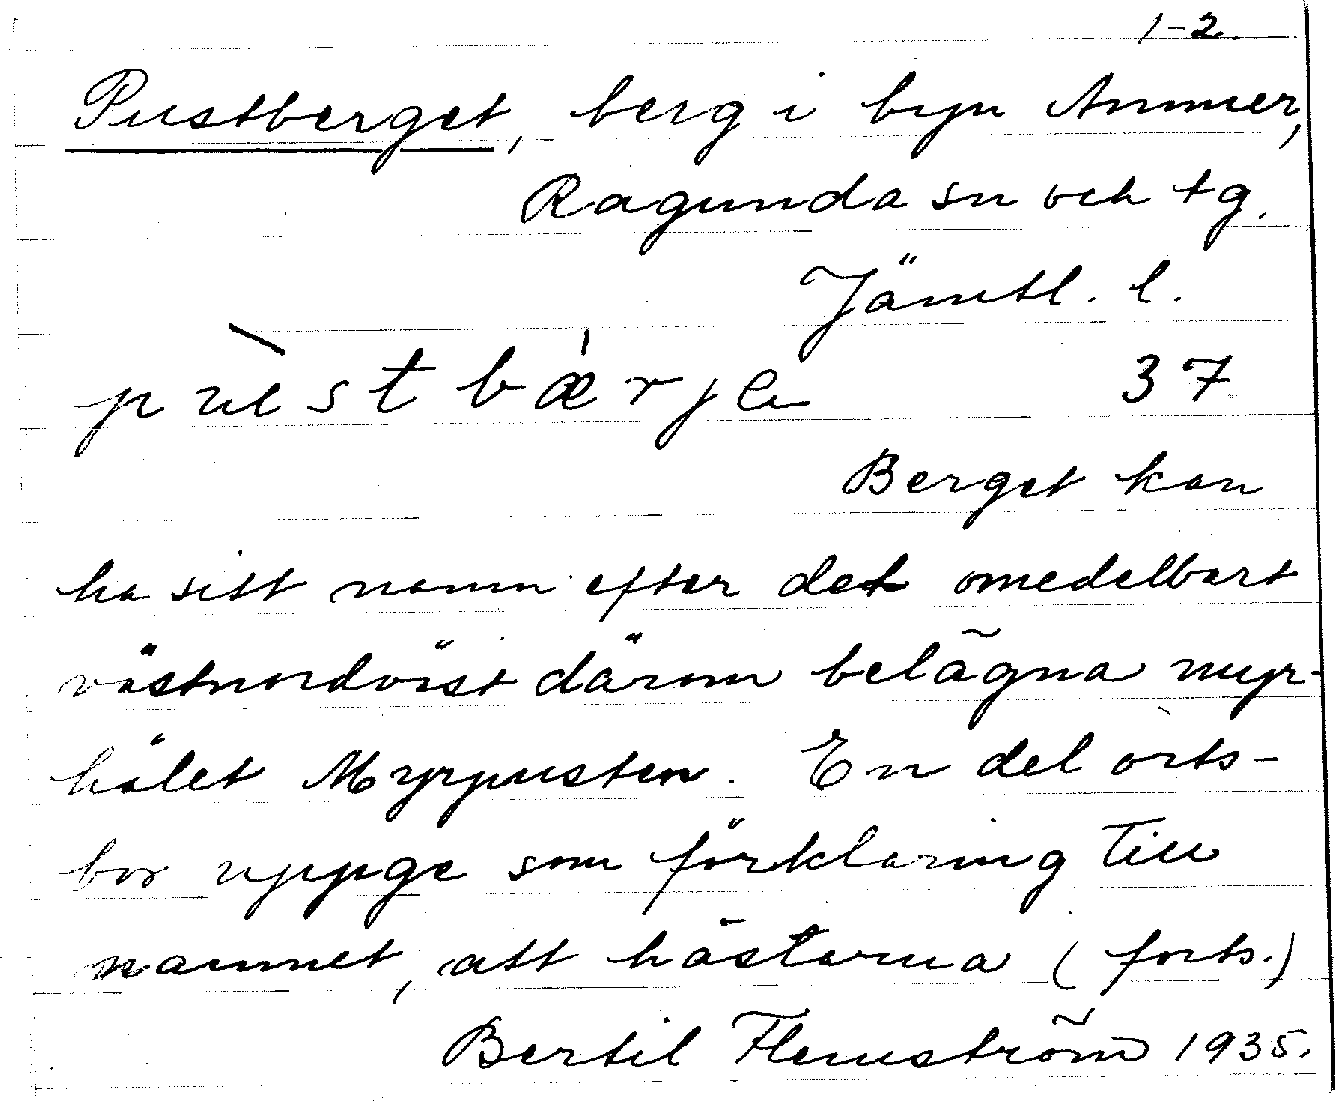 1-2.
Pustberget, berg i byn Ammer,
Ragunda sn och tg.
Jämtl. l.
pùstbæ̍rje 37
Berget kan
ha sitt namn efter det omedelbart
västnordväst därom belägna myr-
hålet Myrpusten. En del orts-
bor uppge som förklaring till
namnet, att hästarna (forts.)
Bertil Flemström 1935.